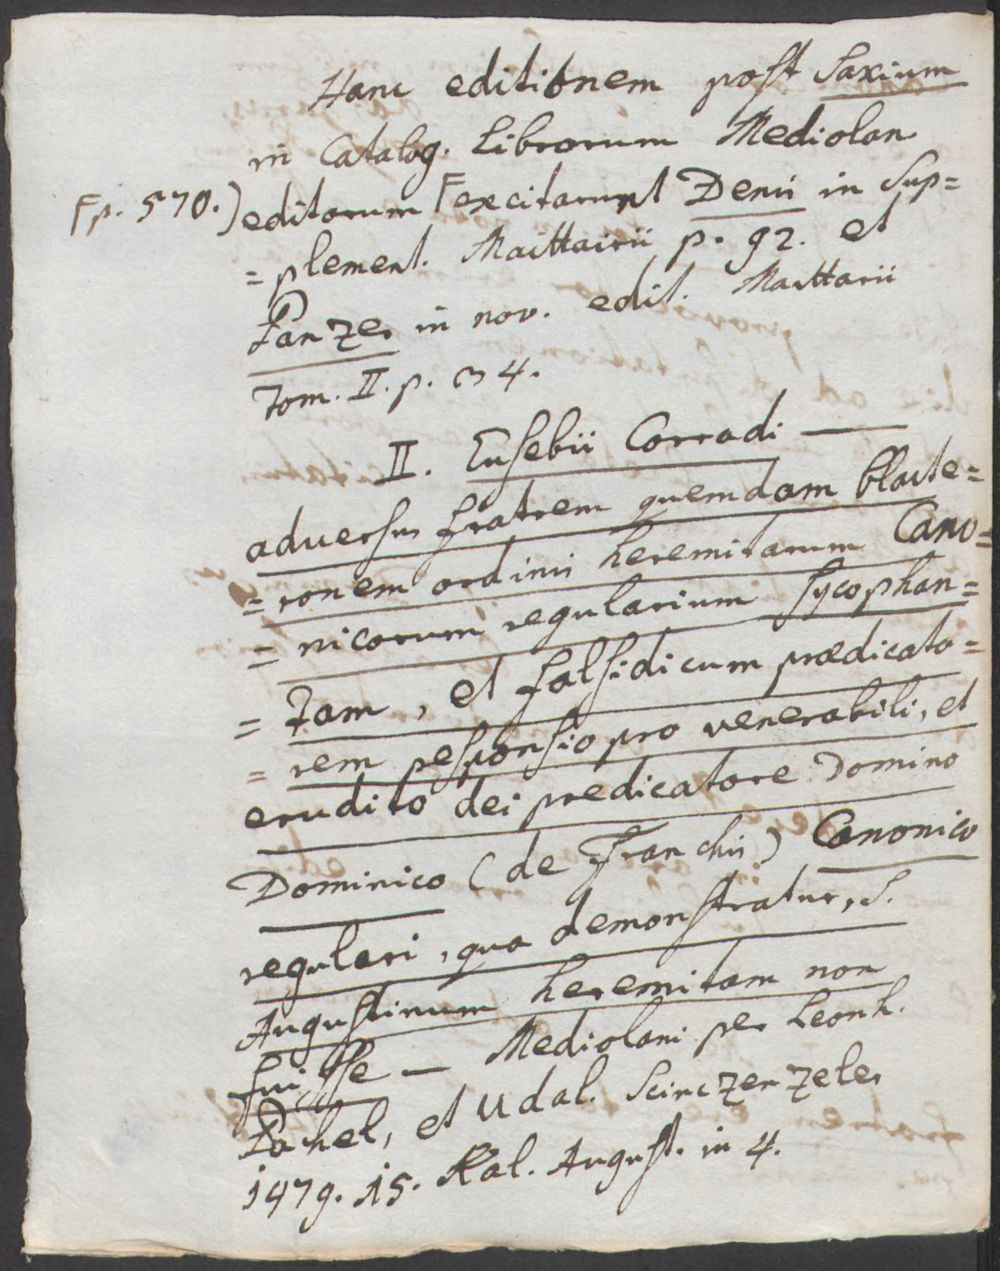 Hanc editionem post Saxium
in Catalog. Librorum Mediolan
Fp. 570.) editorum F excitarunt Denis in Sup=
= plement. Maittairii p. 92. et
Panzer in nov. edit. Maittarii
Tom. II. p. 34.
II. Eusebii Corradi —
adversus fratrem quemdam blacte=
= ronem ordinis heremitarum Cano=
= nicorum regularium Sycophan=
= tam, et falsidicum prædicato=
= rem responsio pro venerabili, et
erudito dei predicatore Domino
Dominico (de Franchis) Canonico
regulari, qua demonstratur, S.
Augustinum heremitam non
fuisse — Mediolani per Leonh.
Pachel, et Udal. Scinczenzeler
1479. 15. Kal. August. in 4.